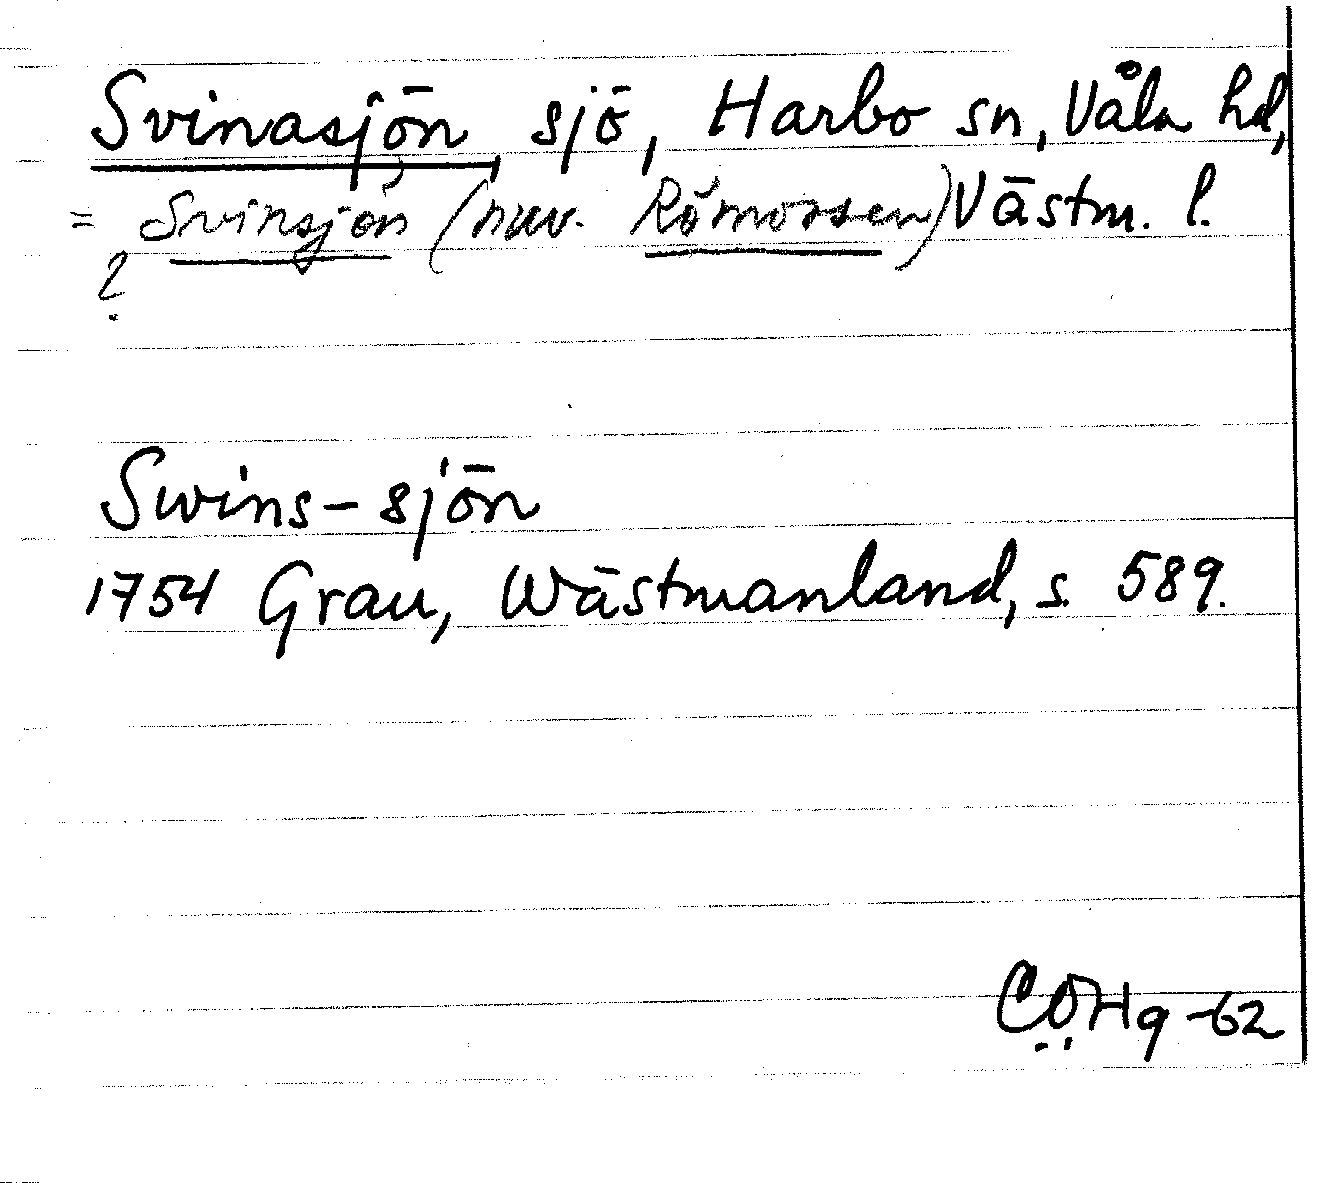 Svinasjön, sjö, Harbo sn, Våla hd,
= Svinsjön (nuv. Römossen) Västm. l.
?
Swins-sjön
1754 Grau, Wästmanland, s. 589.
CÖHg -62